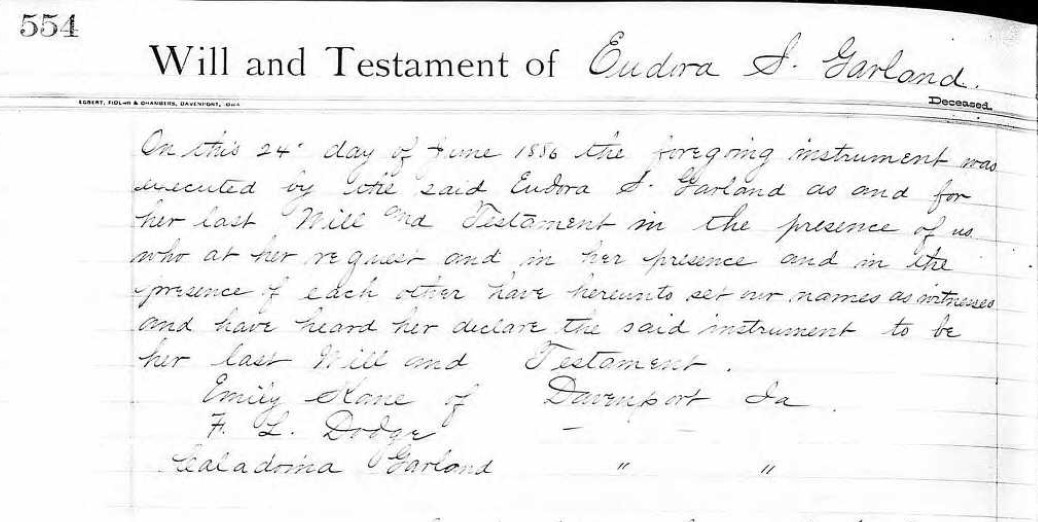 554
Will and Testament of Eudora S. Garland.
EGBERT, FIDLAR & CHAMBERS, DAVENPORT, IOWA
Deceased.
On this 24" day of June 1886 the foregoing instrument was
executed by the said Eudora S. Garland as and for
her last Will and Testament in the presence of us
who at her request and in her presence and in the
presence of each other have hereunto set our names as witnesses
and have heard her declare the said instrument to be
her last Will and Testament.
Emily Kane of Davenport Ia.
F. L. Dodge — —
Garland " "